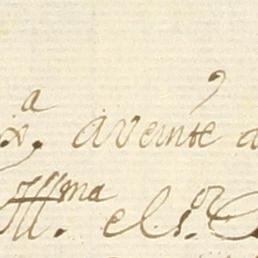 x.ª aveinte d
Illma. el s.or